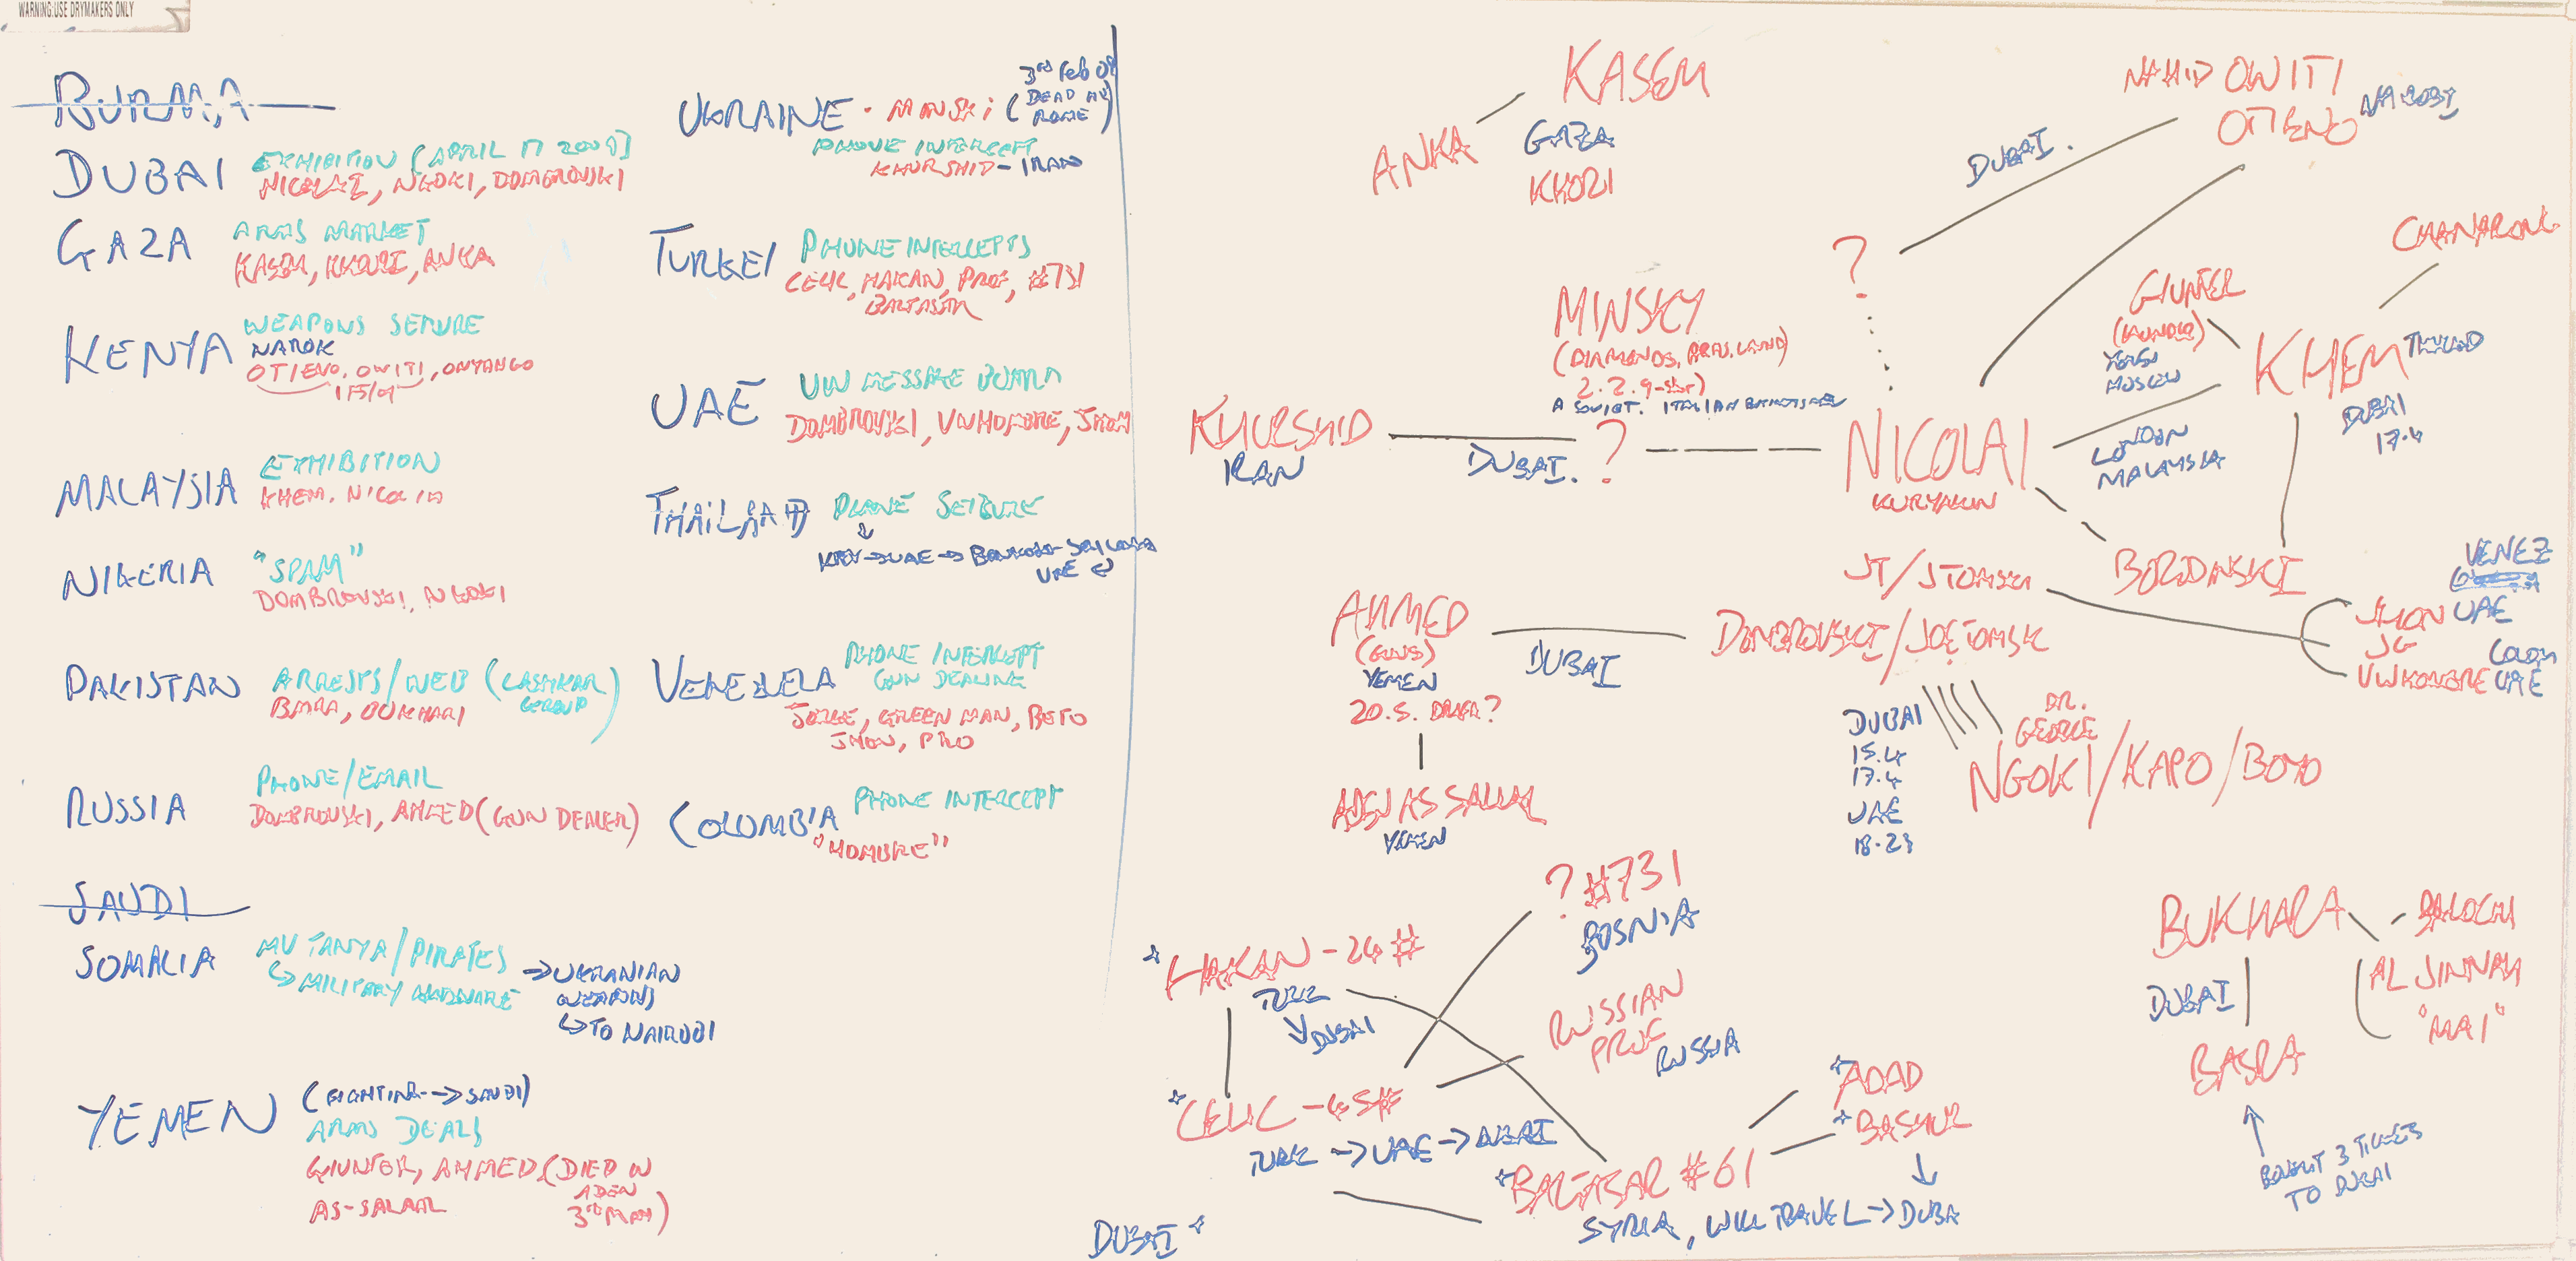 WARNING: USE DRYMAKERS ONLY
BURMA
DUBAI EXHIBITION (APRIL 17 2009)
NICOLAI, NGOKI, DOMBROVSKI
GAZA ARMS MARKET
KASEM, KHOURI, ANKA
KENYA WEAPONS SEIZURE
NAROK
OTIENO, OWITI, ONYANGO
MALAYSIA EXHIBITION
KHEM, NICOLAI
NIGERIA "SPAM"
DOMBROVSKI, NGOKI
PAKISTAN ARRESTS/WEB (LASHKAR GROUP)
BASRA, BUKHARI
RUSSIA PHONE/EMAIL
DOMBROVSKI, AHMED (GUN DEALER)
SAUDI
SOMALIA MV TANYA/PIRATES
↳ MILITARY HARDWARE → UKRANIAN
WEAPONS
↳ TO NAIROBI
YEMEN (FIGHTING --> SAUDI)
ARMS DEALS
GIUNTER, AHMED (DIED IN
ADEN
AS-SALAAL 3RD MAY)
UKRAINE · MINSKI (3rd Feb 09
DEAD IN
ROME)
PHONE INTERCEPT
KHURSHID - IRAN
TURKEY PHONE INTERCEPTS
CELIC, HAKAN, PROF, #731
BALTASAR
UAE VW MESSAGE BOARD
DOMBROVSKI, VWHOMBRE, JHON
THAILAND PLANE SEIZURE
→ UAE → BANGKOK - SRI LANKA
UAE
VENEZUELA PHONE INTERCEPT
GUN DEALING
JORGE, GREEN MAN, BETO
JHON, PRO
COLUMBIA PHONE INTERCEPT
"HOMBRE"
KASEM
ANKA GAZA
KHORI
NAHID OWITI
OTIENO NAIROBI
DUBAI.
?
CHANARONG
GIUNTER
YEMEN
MOSCOW
KHEM THAILAND
DUBAI
17.4
MINSKY
(DIAMONDS, ARMS, LAND)
2.2.9
KHURSHID
IRAN
DUBAI.
?
NICOLAI
KURYAKIN
LONDON
MALAYSIA
JT/JTOMSKI
BORDINSKI
VENEZ
JHON UAE
JG COLOM
VWHOMBRE UAE
AHMED
(GUNS)
YEMEN
20.5.
DUBAI
DOMBROVSKI/JOETOMSK
ADEN AS SALAAL
YEMEN
DUBAI
15.4
17.4
UAE
18-23
DR.
GEORGE
NGOKI/KAPO/BOYO
? #731
BOSNIA
HAKAN - 24 #
TURK
DUBAI
RUSSIAN
PROF
RUSSIA
CELIC - 45#
TURK → UAE → DUBAI
ADAD
BASHUR
BALTASAR #61
SYRIA, WILL TRAVEL → DUBA
DUBAI
BUKHARA
BALOCHI
AL JINNAH
"MAI"
DUBAI
BASRA
BOUGHT 3 TICKETS
TO DUBAI